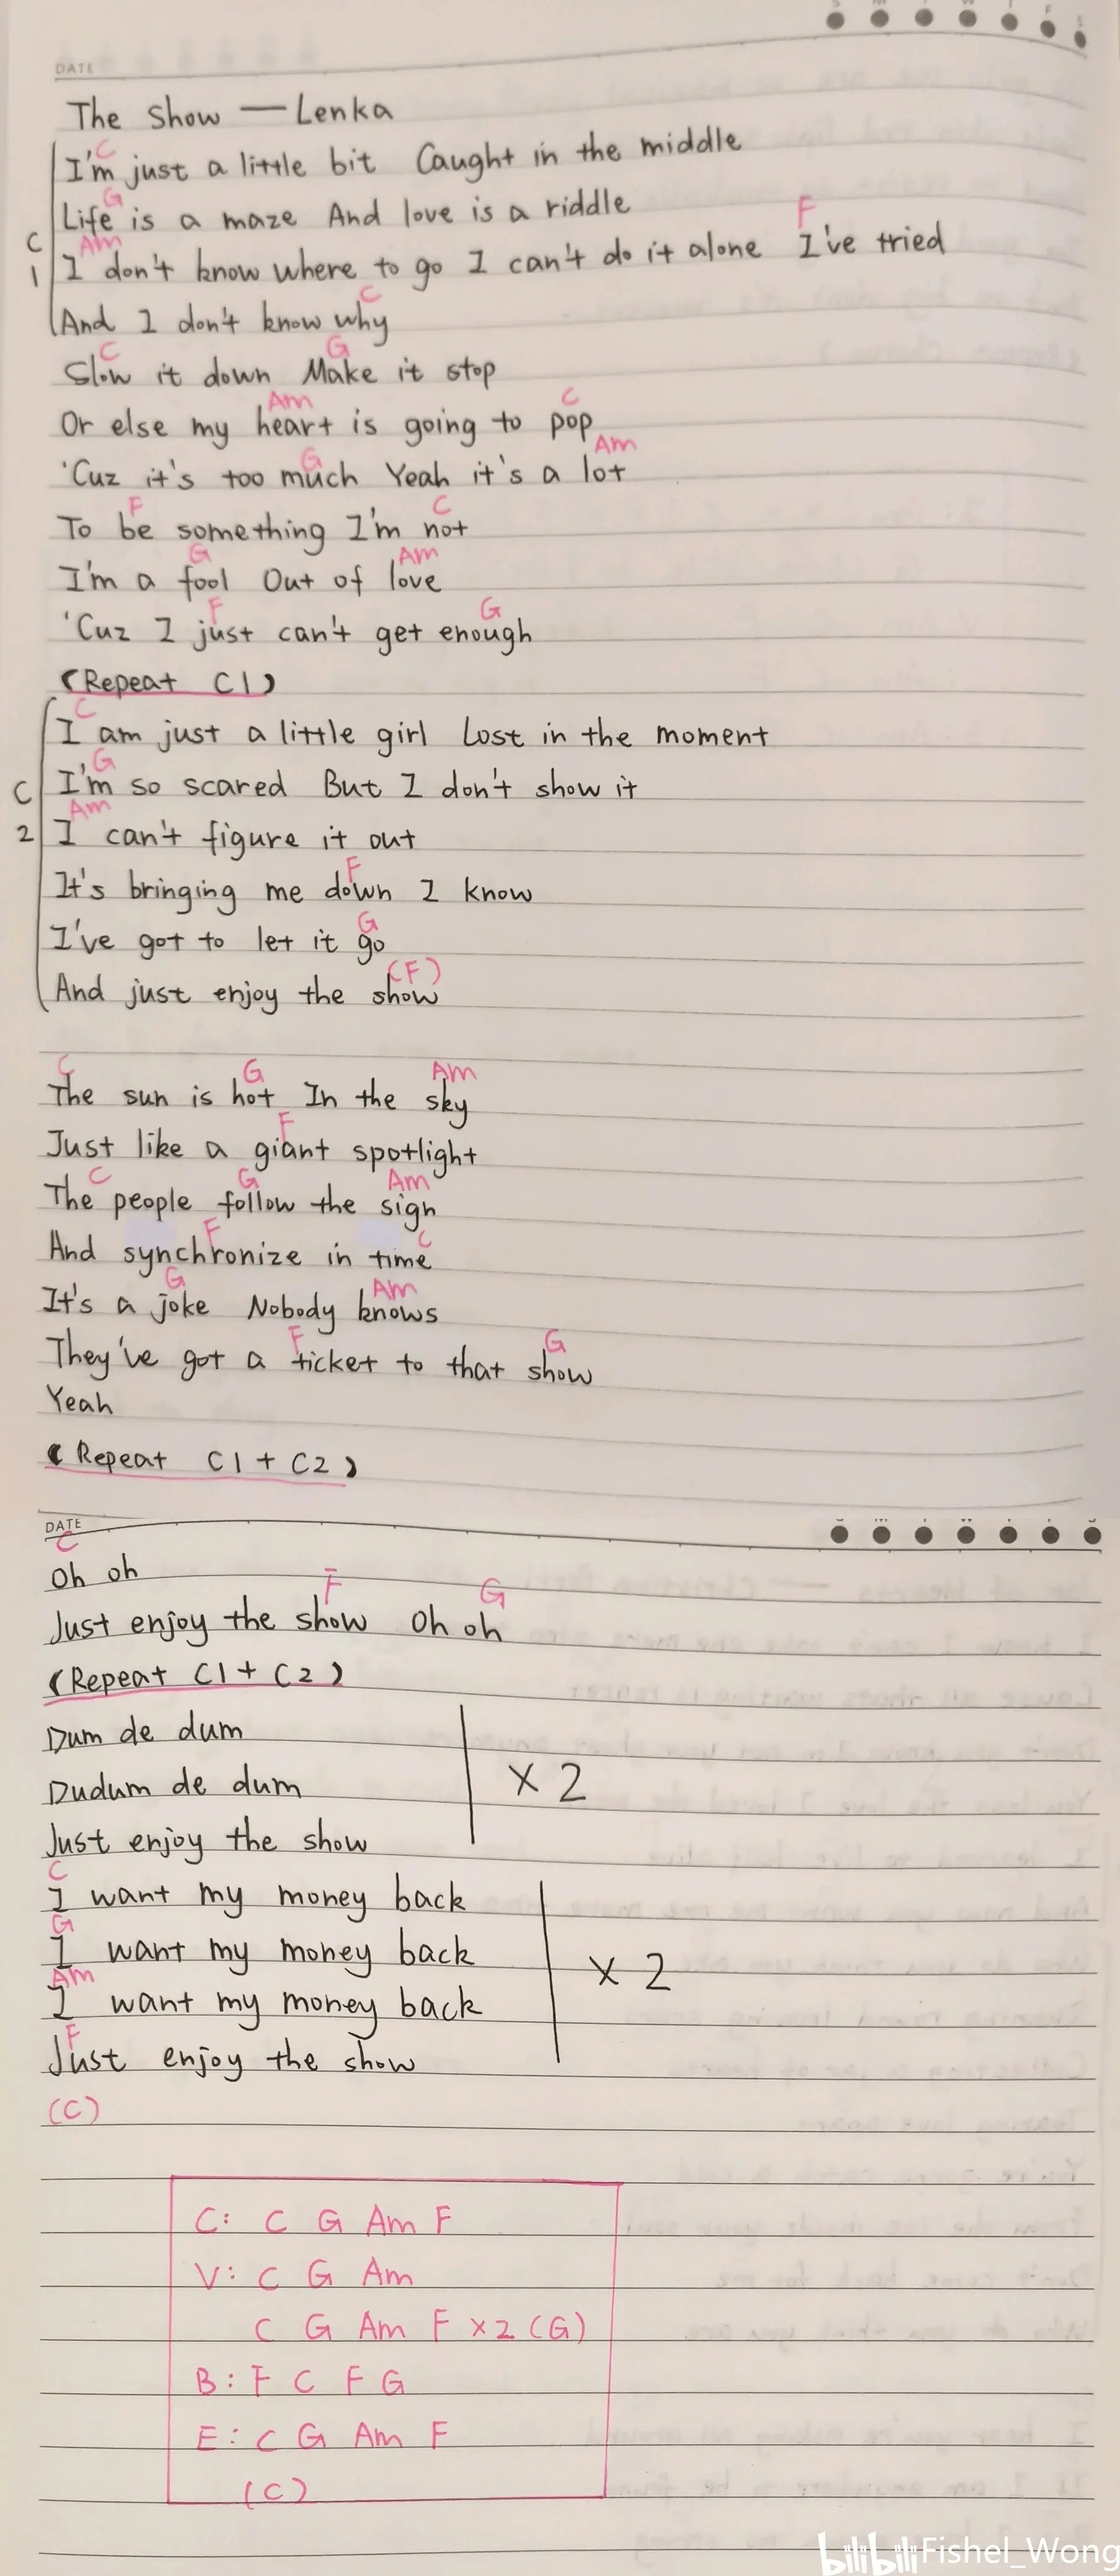 DATE
The Show — Lenka
C
I'm just a little bit Caught in the middle
G
Life is a maze And love is a riddle
C
1
Am F
I don't know where to go I can't do it alone I've tried
C
And I don't know why
C G
Slow it down Make it stop
Am C
Or else my heart is going to pop
G Am
'Cuz it's too much Yeah it's a lot
F C
To be something I'm not
G Am
I'm a fool Out of love
F G
'Cuz I just can't get enough
(Repeat C1)
C
I am just a little girl Lost in the moment
G
I'm so scared But I don't show it
C
2
Am
I can't figure it out
F
It's bringing me down I know
G
I've got to let it go
(F)
And just enjoy the show
C G Am
The sun is hot In the sky
F
Just like a giant spotlight
C G Am
The people follow the sign
F C
And synchronize in time
G Am
It's a joke Nobody knows
F G
They've got a ticket to that show
Yeah
(Repeat C1 + C2)
DATE
C
Oh oh
F G
Just enjoy the show Oh oh
(Repeat C1 + C2)
Dum de dum
Dudum de dum
× 2
Just enjoy the show
C
I want my money back
G
I want my money back
× 2
Am
I want my money back
F
Just enjoy the show
(C)
C: C G Am F
V: C G Am
C G Am F ×2 (G)
B: F C F G
E: C G Am F
(C)
bilibili Fishel_Wong